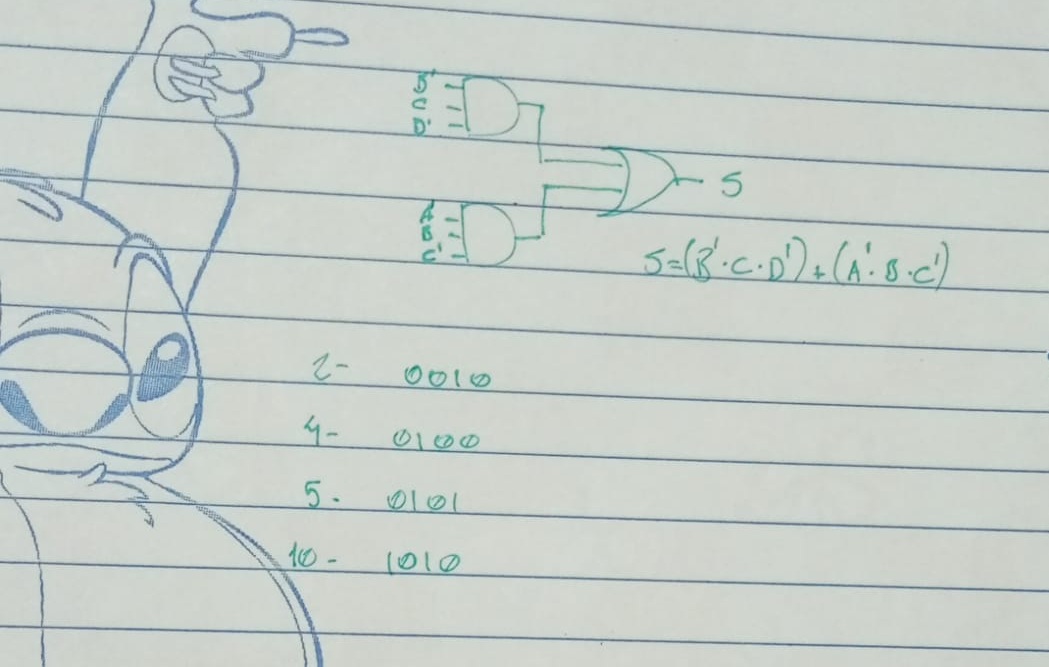 B'
C
D'
S
A'
B
C'
S=(B'·C·D')+(A'·B·C')
2- 0010
4- 0100
5- 0101
10- 1010